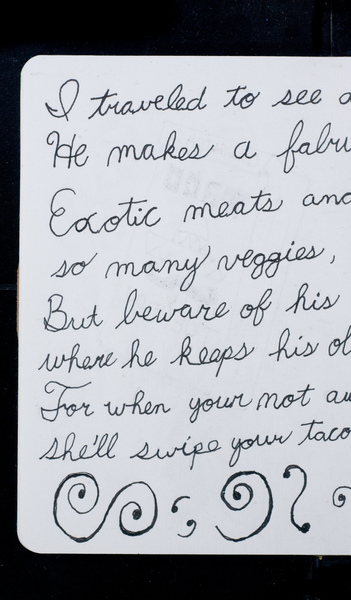 I traveled to see a
He makes a fabu
Exotic meats and
so many veggies,
But beware of his
where he keeps his ol
For when your not aw
she'll swipe your taco